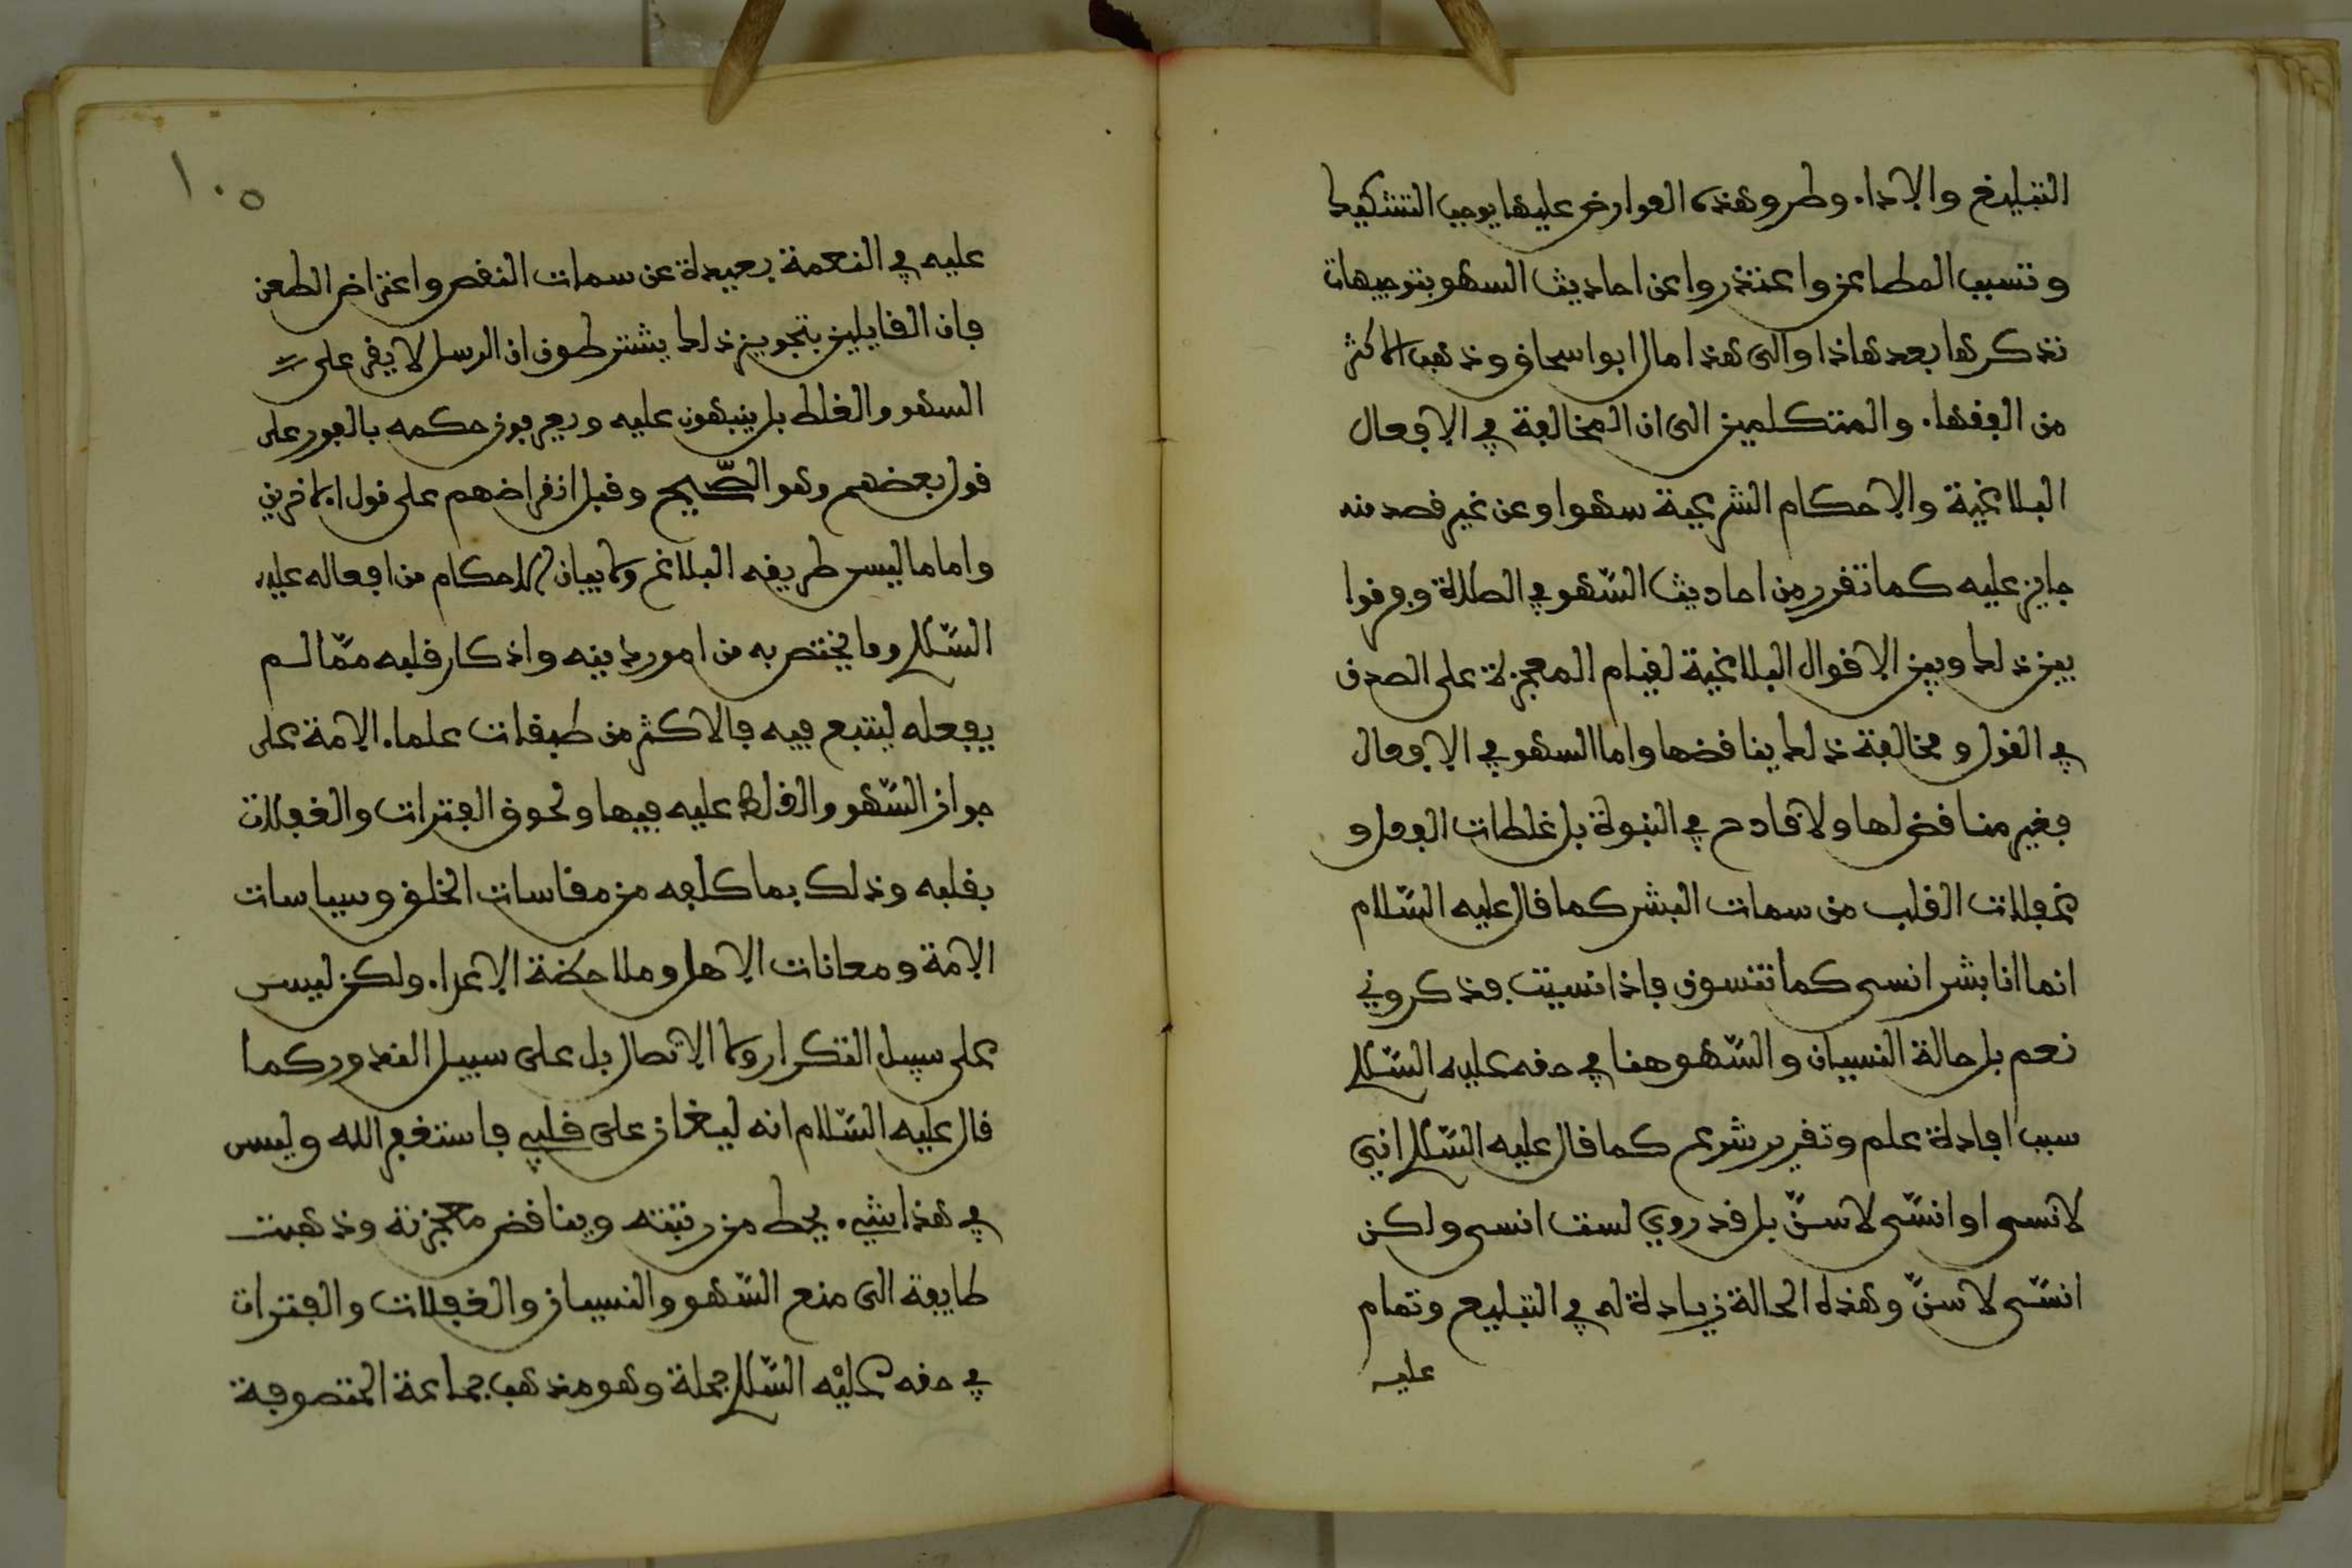 التبليغ والاداء وطرو هذه العوارض عليها يوجب التشكيك
وتسبب المطاعن واعتذروا عن احاديث السهو بتوجيهات
نذكرها بعد هاذا والى هذا مال ابو اسحاق وذهب الاكثر
من الفقهاء والمتكلمين الى ان المخالفة في الافعال
البلاغية والاحكام الشرعية سهوا وعن غير قصد منه
جايز عليه كما تقرر من احاديث السّهو في الصلاة وفرقوا
بين ذلك وبين الاقوال البلاغية لقيام المعجزة على الصدق
في القول ومخالفة ذلك يناقضها واما السهو في الافعال
فغير مناقض لها ولا قادح في النبوة بل غلطات الفعل و
غفلات القلب من سمات البشر كما قال عليه السّلام
انما انا بشر انسى كما تنسون فاذا نسيت فذكروني
نعم بل حالة النسيان والسّهو هنا في حقه عليه السّلام
سبب افادة علم وتقرير شرع كما قال عليه السّلام اني
لانسى او انسّى لاسنّ بل قد روي لست انسى ولكن
انسّى لاسنّ وهذه الحالة زيادة له في التبليغ وتمام
عليه
١٠٥
عليه في النعمة بعيدة عن سمات النقص واعتراض الطعن
فان القايلين بتجويز ذلك يشترطون ان الرسل لا يقر على
السهو والغلط بل ينبهون عليه ويعرفون حكمه بالفور على
قول بعضهم وهو الصّحيح وقبل انقراضهم على قول الاخرين
واما ما ليس طريقه البلاغ ولا بيان الاحكام من افعاله عليه
السّلام وما يختص به من امور دينه واذكار قلبه ممّا لم
يفعله ليتبع فيه فالاكثر من طبقات علماء الامة على
جواز السّهو والغلط عليه فيها ولحوق الفترات والغفلات
بقلبه وذلك بما كلفه من مقاسات الخلق وسياسات
الامة ومعانات الاهل وملاحظة الاعداء ولكن ليس
على سبيل التكرار ولا الاتصال بل على سبيل الندور كما
قال عليه السّلام انه ليغان على قلبي فاستغفر الله وليس
في هذا شيء يحط من رتبته ويناقض معجزته وذهبت
طايفة الى منع السّهو والنسيان والغفلات والفترات
في حقه عليه السّلام جملة وهو مذهب جماعة المتصوفة